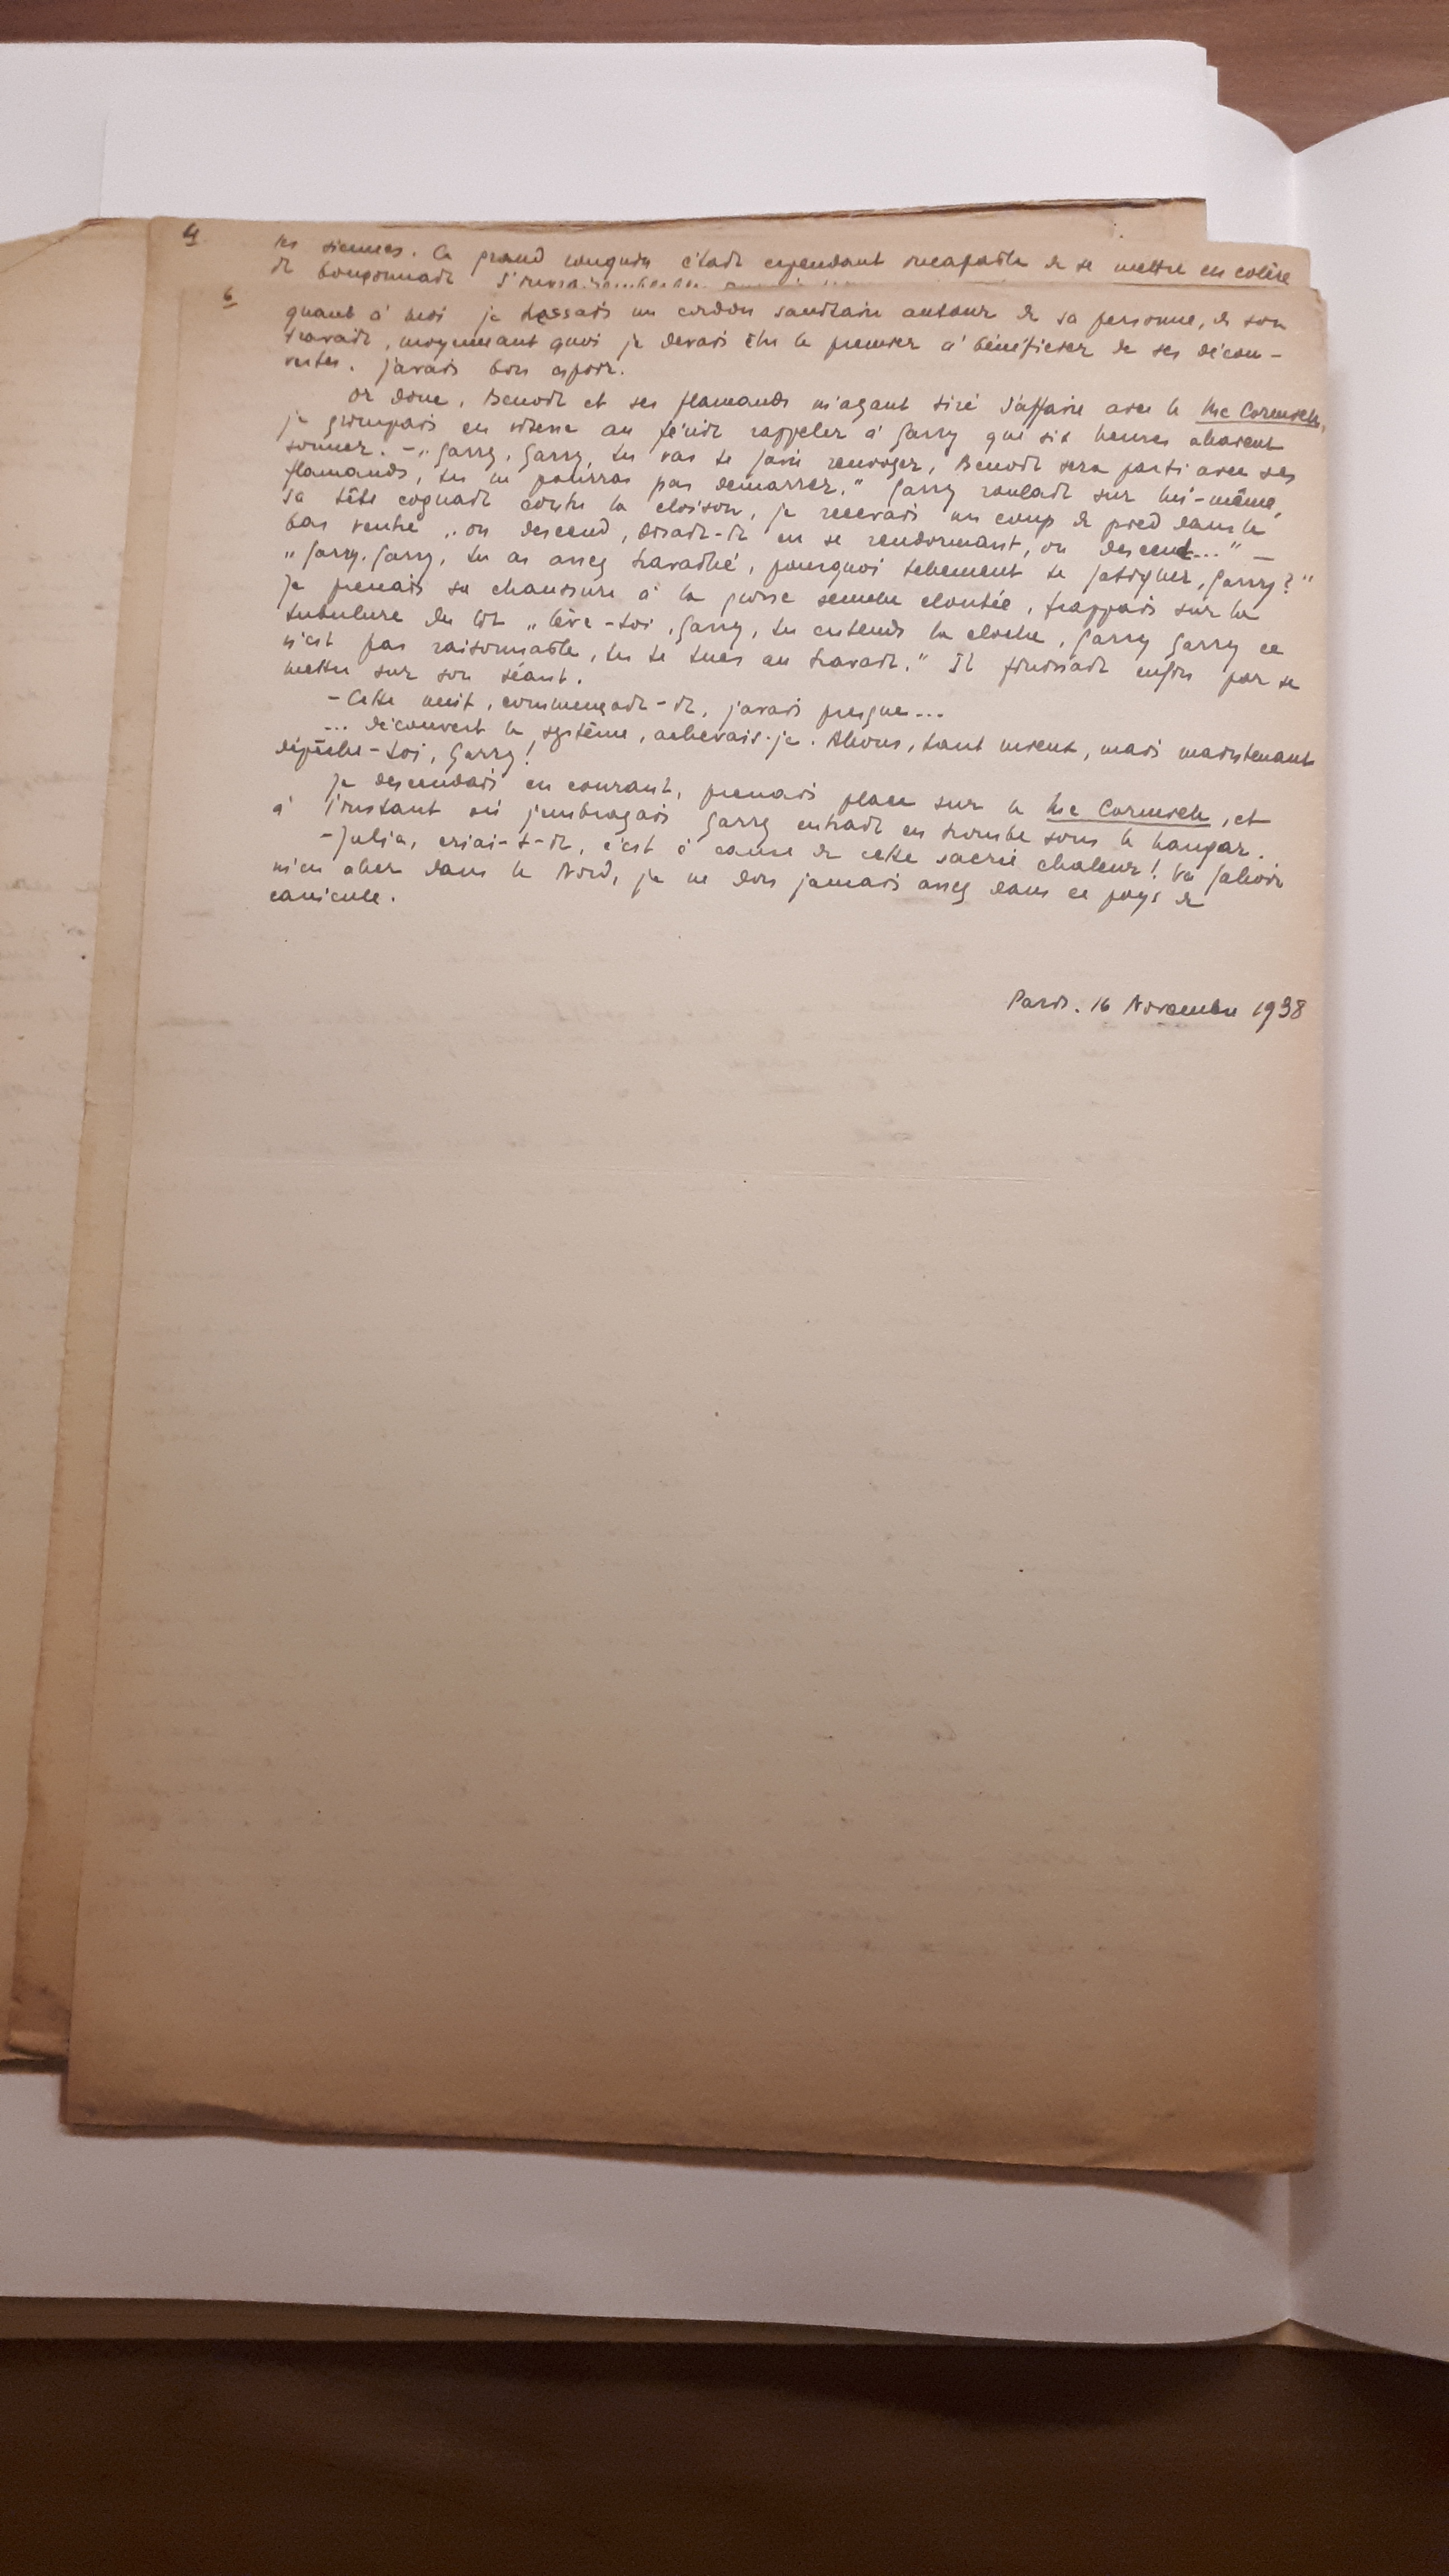 4
les siennes. Ce grand rouquin était cependant incapable de se mettre en colère
Il bougonnait
6
quant à moi je dressais un cordon sanitaire autour de sa personne, de son
travail, moyennant quoi je devais être le premier à bénéficier de ses décou-
vertes. j'avais bon espoir.
Or donc, Benoît et ses flamands m'ayant tiré d'affaire avec le Mc Cormick,
je grimpais en vitesse au fénil rappeler à Garry que six heures allaient
sonner. - „Garry, Garry, tu vas te faire renvoyer, Benoît sera parti avec ses
flamands, tu ne pourras pas démarrer." Garry roulait sur lui-même,
sa tête cognait contre la cloison, je recevais un coup de pied dans le
bas ventre „on descend, disait-il en se rendormant, on descend..." —
„Garry, Garry, tu as assez travaillé, pourquoi tellement te fatiguer, Garry?"
Je prenais sa chaussure à la grosse semelle cloutée, frappais sur la
tubulure du lit „lève-toi, Garry, tu entends la cloche, Garry Garry ce
n'est pas raisonnable, tu te tues au travail." Il finissait enfin par se
mettre sur son séant.
- Cette nuit, commençait-il, j'avais presque...
... découvert le système, achevais-je. Allons, tant mieux, mais maintenant
dépêche-toi, Garry!
Je descendais en courant, prenais place sur le Mc Cormick, et
à l'instant où j'embrayais Garry entrait en trombe sous le hangar.
- Julia, criai-t-il, c'est à cause de cette sacrée chaleur! Va falloir
m'en aller dans le Nord, je ne dors jamais assez dans ce pays de
canicule.
Paris. 16 Novembre 1938